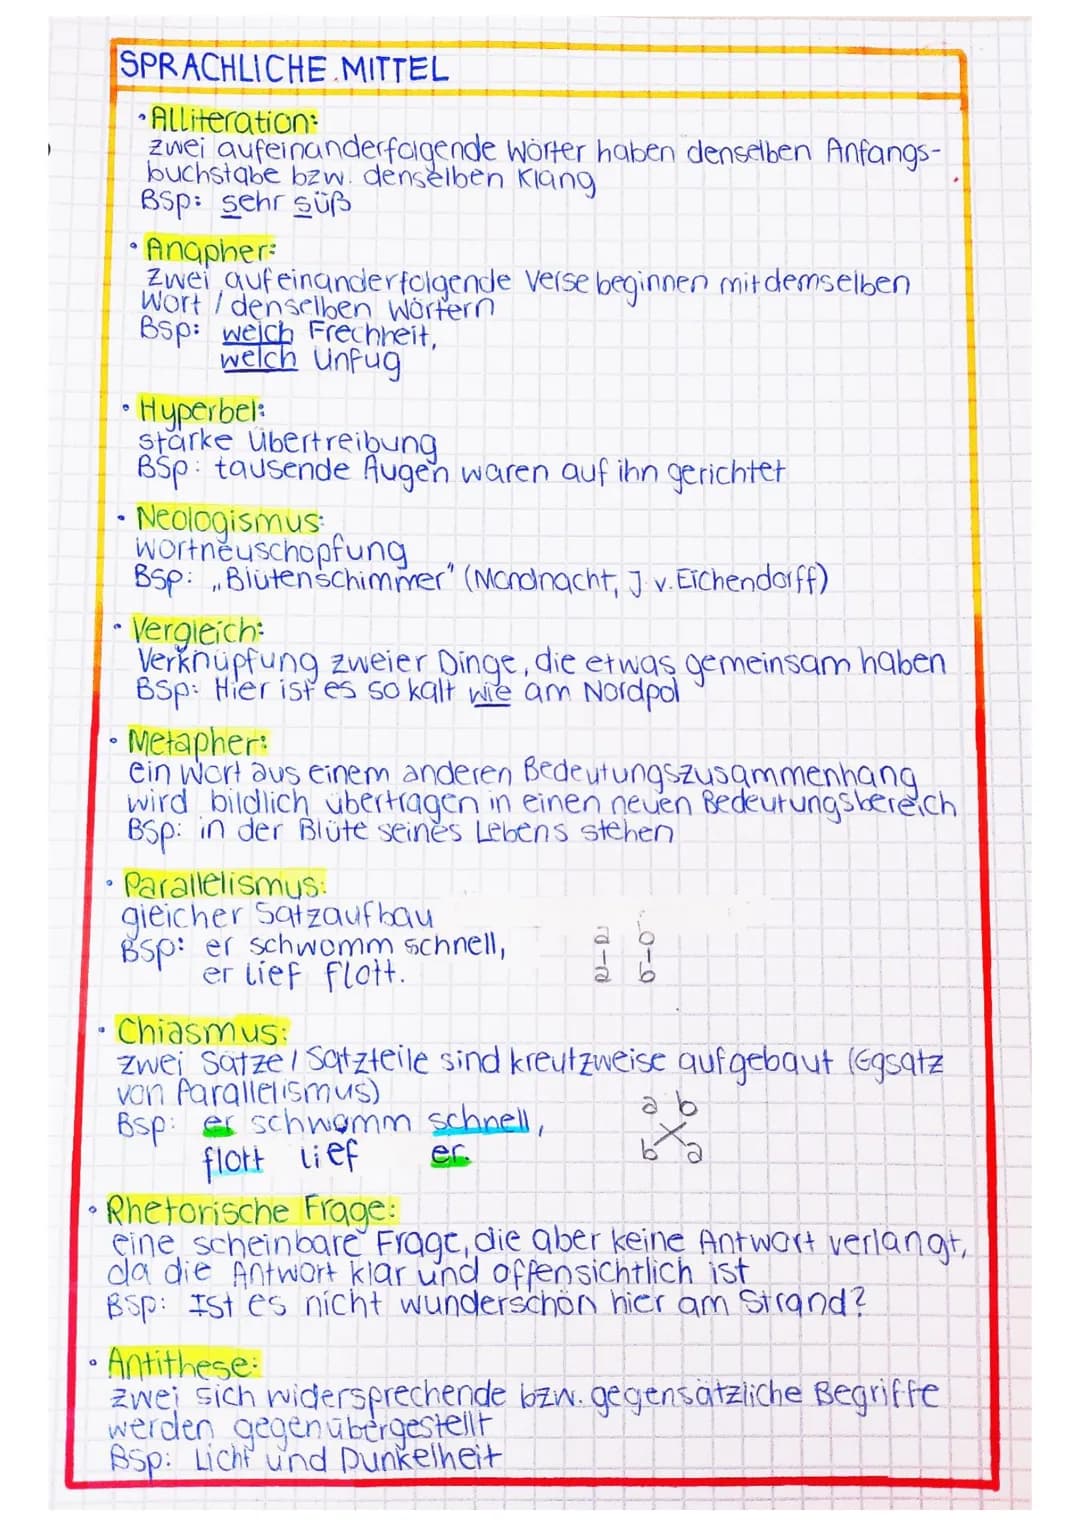 SPRACHLICHE MITTEL
• Alliteration:
zwei aufeinanderfolgende Wörter haben denselben Anfangs-
buchstabe bzw. denselben Klang
Bsp: sehr süß
• Anapher:
zwei aufeinanderfolgende Verse beginnen mit demselben
Wort / denselben Wörtern
Bsp: welch Frechheit,
welch Unfug
• Hyperbel:
starke Übertreibung
Bsp: tausende Augen waren auf ihn gerichtet
• Neologismus:
Wortneuschöpfung
Bsp: „Blütenschimmer" (Mondnacht, J. v. Eichendorff)
• Vergleich:
Verknüpfung zweier Dinge, die etwas gemeinsam haben
Bsp: Hier ist es so kalt wie am Nordpol
• Metapher:
ein Wort aus einem anderen Bedeutungszusammenhang
wird bildlich übertragen in einen neuen Bedeutungsbereich
Bsp: in der Blüte seines Lebens stehen
• Parallelismus:
gleicher Satzaufbau
Bsp: er schwomm schnell, a b
er lief flott. a b
• Chiasmus:
zwei Sätze / Satzteile sind kreutzweise aufgebaut (Ggsatz
von Parallelismus)
a b
Bsp: er schwamm schnell,
flott lief er. b a
• Rhetorische Frage:
eine scheinbare Frage, die aber keine Antwort verlangt,
da die Antwort klar und offensichtlich ist
Bsp: Ist es nicht wunderschön hier am Strand?
• Antithese:
zwei sich widersprechende bzw. gegensätzliche Begriffe
werden gegenübergestellt
Bsp: Licht und Dunkelheit